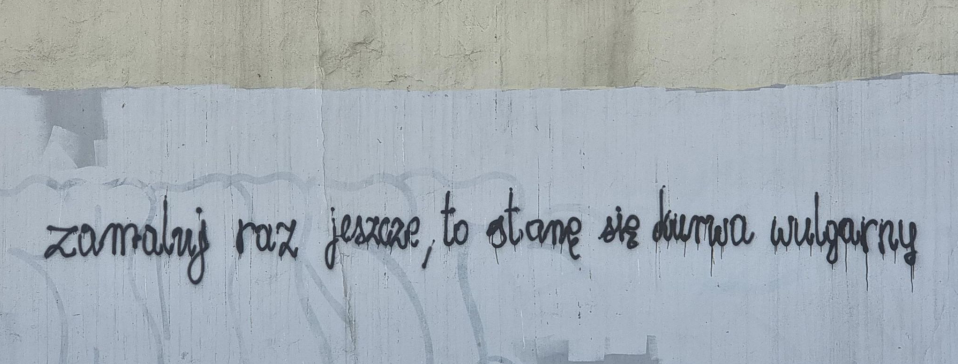 zamaluj raz jeszcze, to stanę się kurwa wulgarny